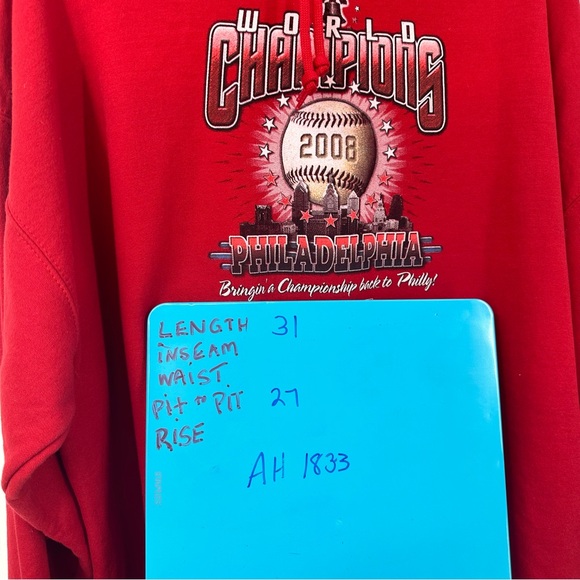 WORLD
CHAMPIONS
2008
PHILADELPHIA
Bringin' a Championship back to Philly!
LENGTH 31
INSEAM
WAIST
Pit to PIT 27
RISE
AH 1833